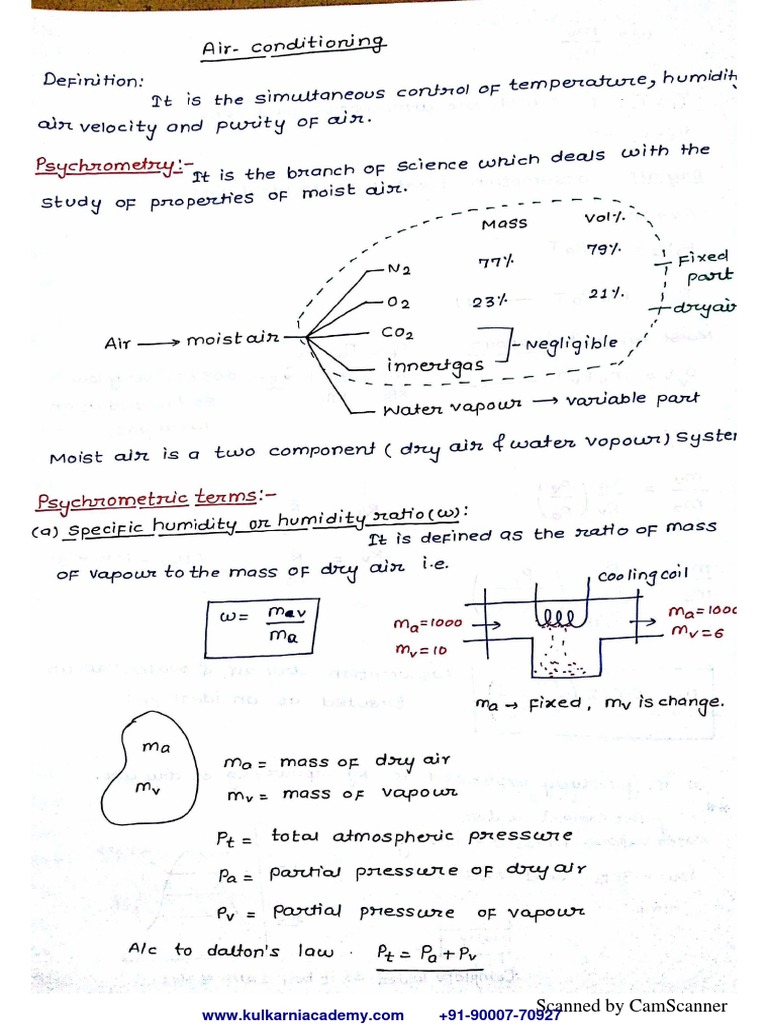 Air-conditioning
Definition:
It is the simultaneous control of temperature, humidity
air velocity and purity of air.
Psychrometry:- It is the branch of science which deals with the
study of properties of moist air.
Mass Vol%
N2 77% 79%
Fixed part
O2 23% 21%
dryair
Air → moist air
CO2
innertgas
Negligible
Water vapour → variable part
Moist air is a two component (dry air & water vopour) System
Psychrometric terms:-
(a) Specific humidity or humidity ratio (ω):
It is defined as the ratio of mass
of vapour to the mass of dry air i.e.
cooling coil
ω = mav / ma
ma=1000
mv=10
ma=1000
mv=6
ma → Fixed, mv is change.
ma
mv
ma = mass of dry air
mv = mass of vapour
Pt = total atmospheric pressure
Pa = partial pressure of dry air
Pv = Partial pressure of vapour
A/c to dalton's law. Pt = Pa + Pv
Scanned by CamScanner
www.kulkarniacademy.com +91-90007-70927